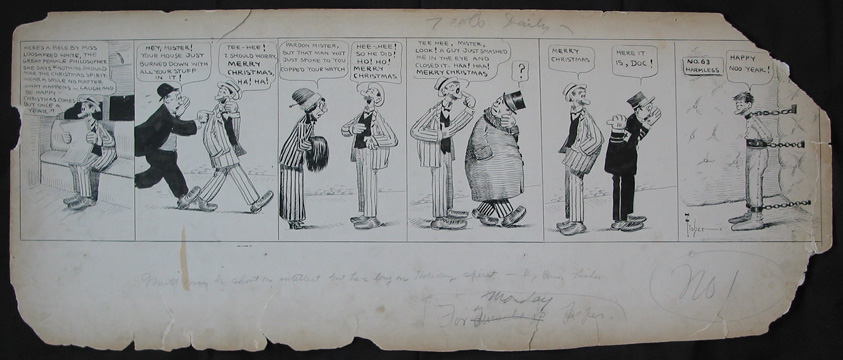 HERE'S A PIECE BY MISS
WHITE, THE
GREAT FEMALE PHILOSOPHER
SHE SAYS
THE CHRISTMAS SPIRIT
A SMILE NO MATTER
WHAT HAPPENS - LAUGH AND
BE HAPPY
"CHRISTMAS COMES
BUT ONCE A
YEAR"!
HEY, MISTER!
YOUR HOUSE JUST
BURNED DOWN WITH
ALL YOUR STUFF
IN IT!
TEE-HEE!
I SHOULD WORRY.
MERRY
CHRISTMAS,
HA! HA!
PARDON MISTER,
BUT THAT MAN WOT
JUST SPOKE TO YOU
COPPED YOUR WATCH
HEE-HEE!
SO HE DID!
HO! HO!
MERRY
CHRISTMAS
TEE HEE, MISTER,
LOOK! A GUY JUST SMASHED
ME IN THE EYE AND
CLOSED IT. HAH! HAH!
MERRY CHRISTMAS
?
MERRY
CHRISTMAS
HERE IT
IS, DOC!
NO. 63
HARMLESS
HAPPY
NOO YEAR!
Daily
Mutt may be short on intellect but he's long on Holiday spirit - By Bud Fisher
No!
Monday
For